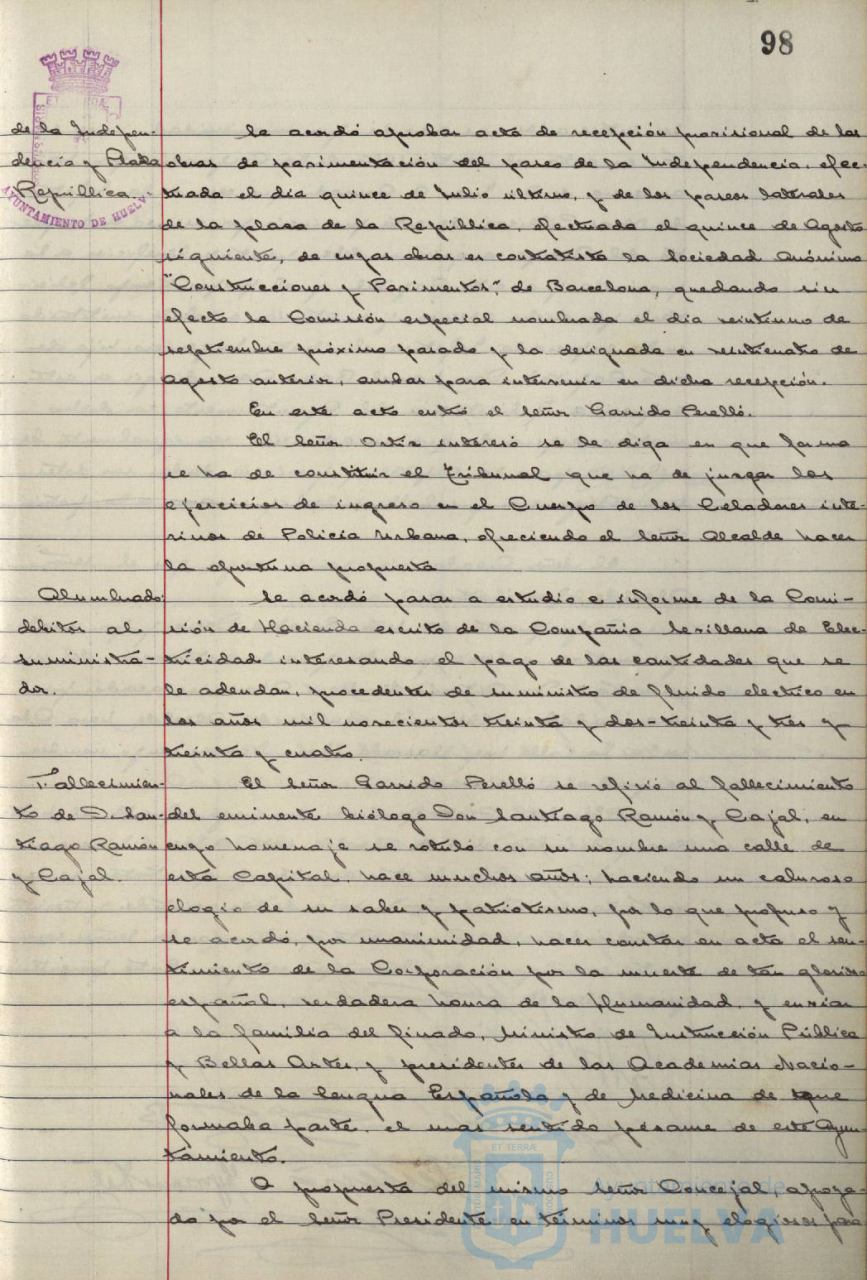 98
de la Indepen-
dencia y Plaza
República.
AYUNTAMIENTO DE HUELVA
Se acordó aprobar acta de recepción provisional de las
obras de pavimentación del paseo de la Independencia, efec-
tuada el día quince de Julio último, y de los paseos laterales
de la plaza de la República, efectuada el quince de Agosto
siguiente, de cuyas obras es contratista la Sociedad Anónima
"Construcciones y Pavimentos", de Barcelona, quedando sin
efecto la Comisión especial nombrada el día veintiuno de
septiembre próximo pasado y la designada en veinticuatro de
agosto anterior, ambas para intervenir en dicha recepción.
En este acto entró el Señor Garrido Perelló.
El Señor Ortiz interesó se le diga en que forma
se ha de constituir el Tribunal que ha de juzgar los
ejercicios de ingreso en el Cuerpo de los Celadores inte-
rinos de Policía Urbana, ofreciendo el Señor Alcalde hacer
la oportuna propuesta
Alumbrado:
debitos al
suministra-
dor.
Se acordó pasar a estudio e informe de la Comi-
sión de Hacienda escrito de la Compañía Sevillana de Elec-
tricidad interesando el pago de las cantidades que se
le adeudan, procedentes de suministro de fluido electrico en
los años mil novecientos treinta y dos-treinta y tres y
treinta y cuatro.
Fallecimien-
to de D. San-
tiago Ramón
y Cajal.
El Señor Garrido Perelló se refirió al fallecimiento
del eminente biólogo Don Santiago Ramón y Cajal, en
cuyo homenaje se rotuló con su nombre una calle de
esta Capital, hace muchos años; haciendo un caluroso
elogio de su saber y patriotismo, por lo que propuso y
se acordó, por unanimidad, hacer constar en acta el sen-
timiento de la Corporación por la muerte de tan glorioso
español, verdadera honra de la Humanidad, y enviar
a la familia del finado, Ministro de Instrucción Pública
y Bellas Artes, y presidentes de las Academias Nacio-
nales de la Lengua Española y de Medicina de que
formaba parte, el mas sentido pésame de este Ayun-
tamiento.
A propuesta del mismo Señor Concejal, apoya-
do por el Señor Presidente en términos muy elogiosos para
Ayuntamiento de
HUELVA